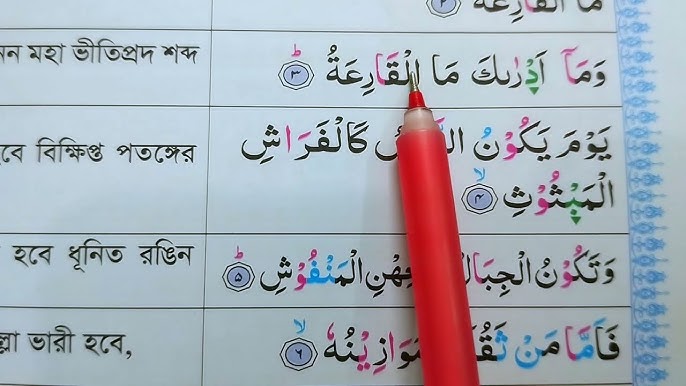 مَا الْقَارِعَةُ ۲
মহা ভীতিপ্রদ শব্দ
وَمَآ اَدْرٰىكَ مَا الْقَارِعَةُ ۳
বিক্ষিপ্ত পতঙ্গের
يَوْمَ يَكُوْنُ كَالْفَرَاشِ
الْمَبْثُوْثِ ۴
হবে ধূনিত রঙিন
وَتَكُوْنُ الْجِبَالُ الْمَنْفُوْشِ ۵
ভারী হবে,
فَاَمَّا مَنْ مَوَازِيْنُهٗ ۶